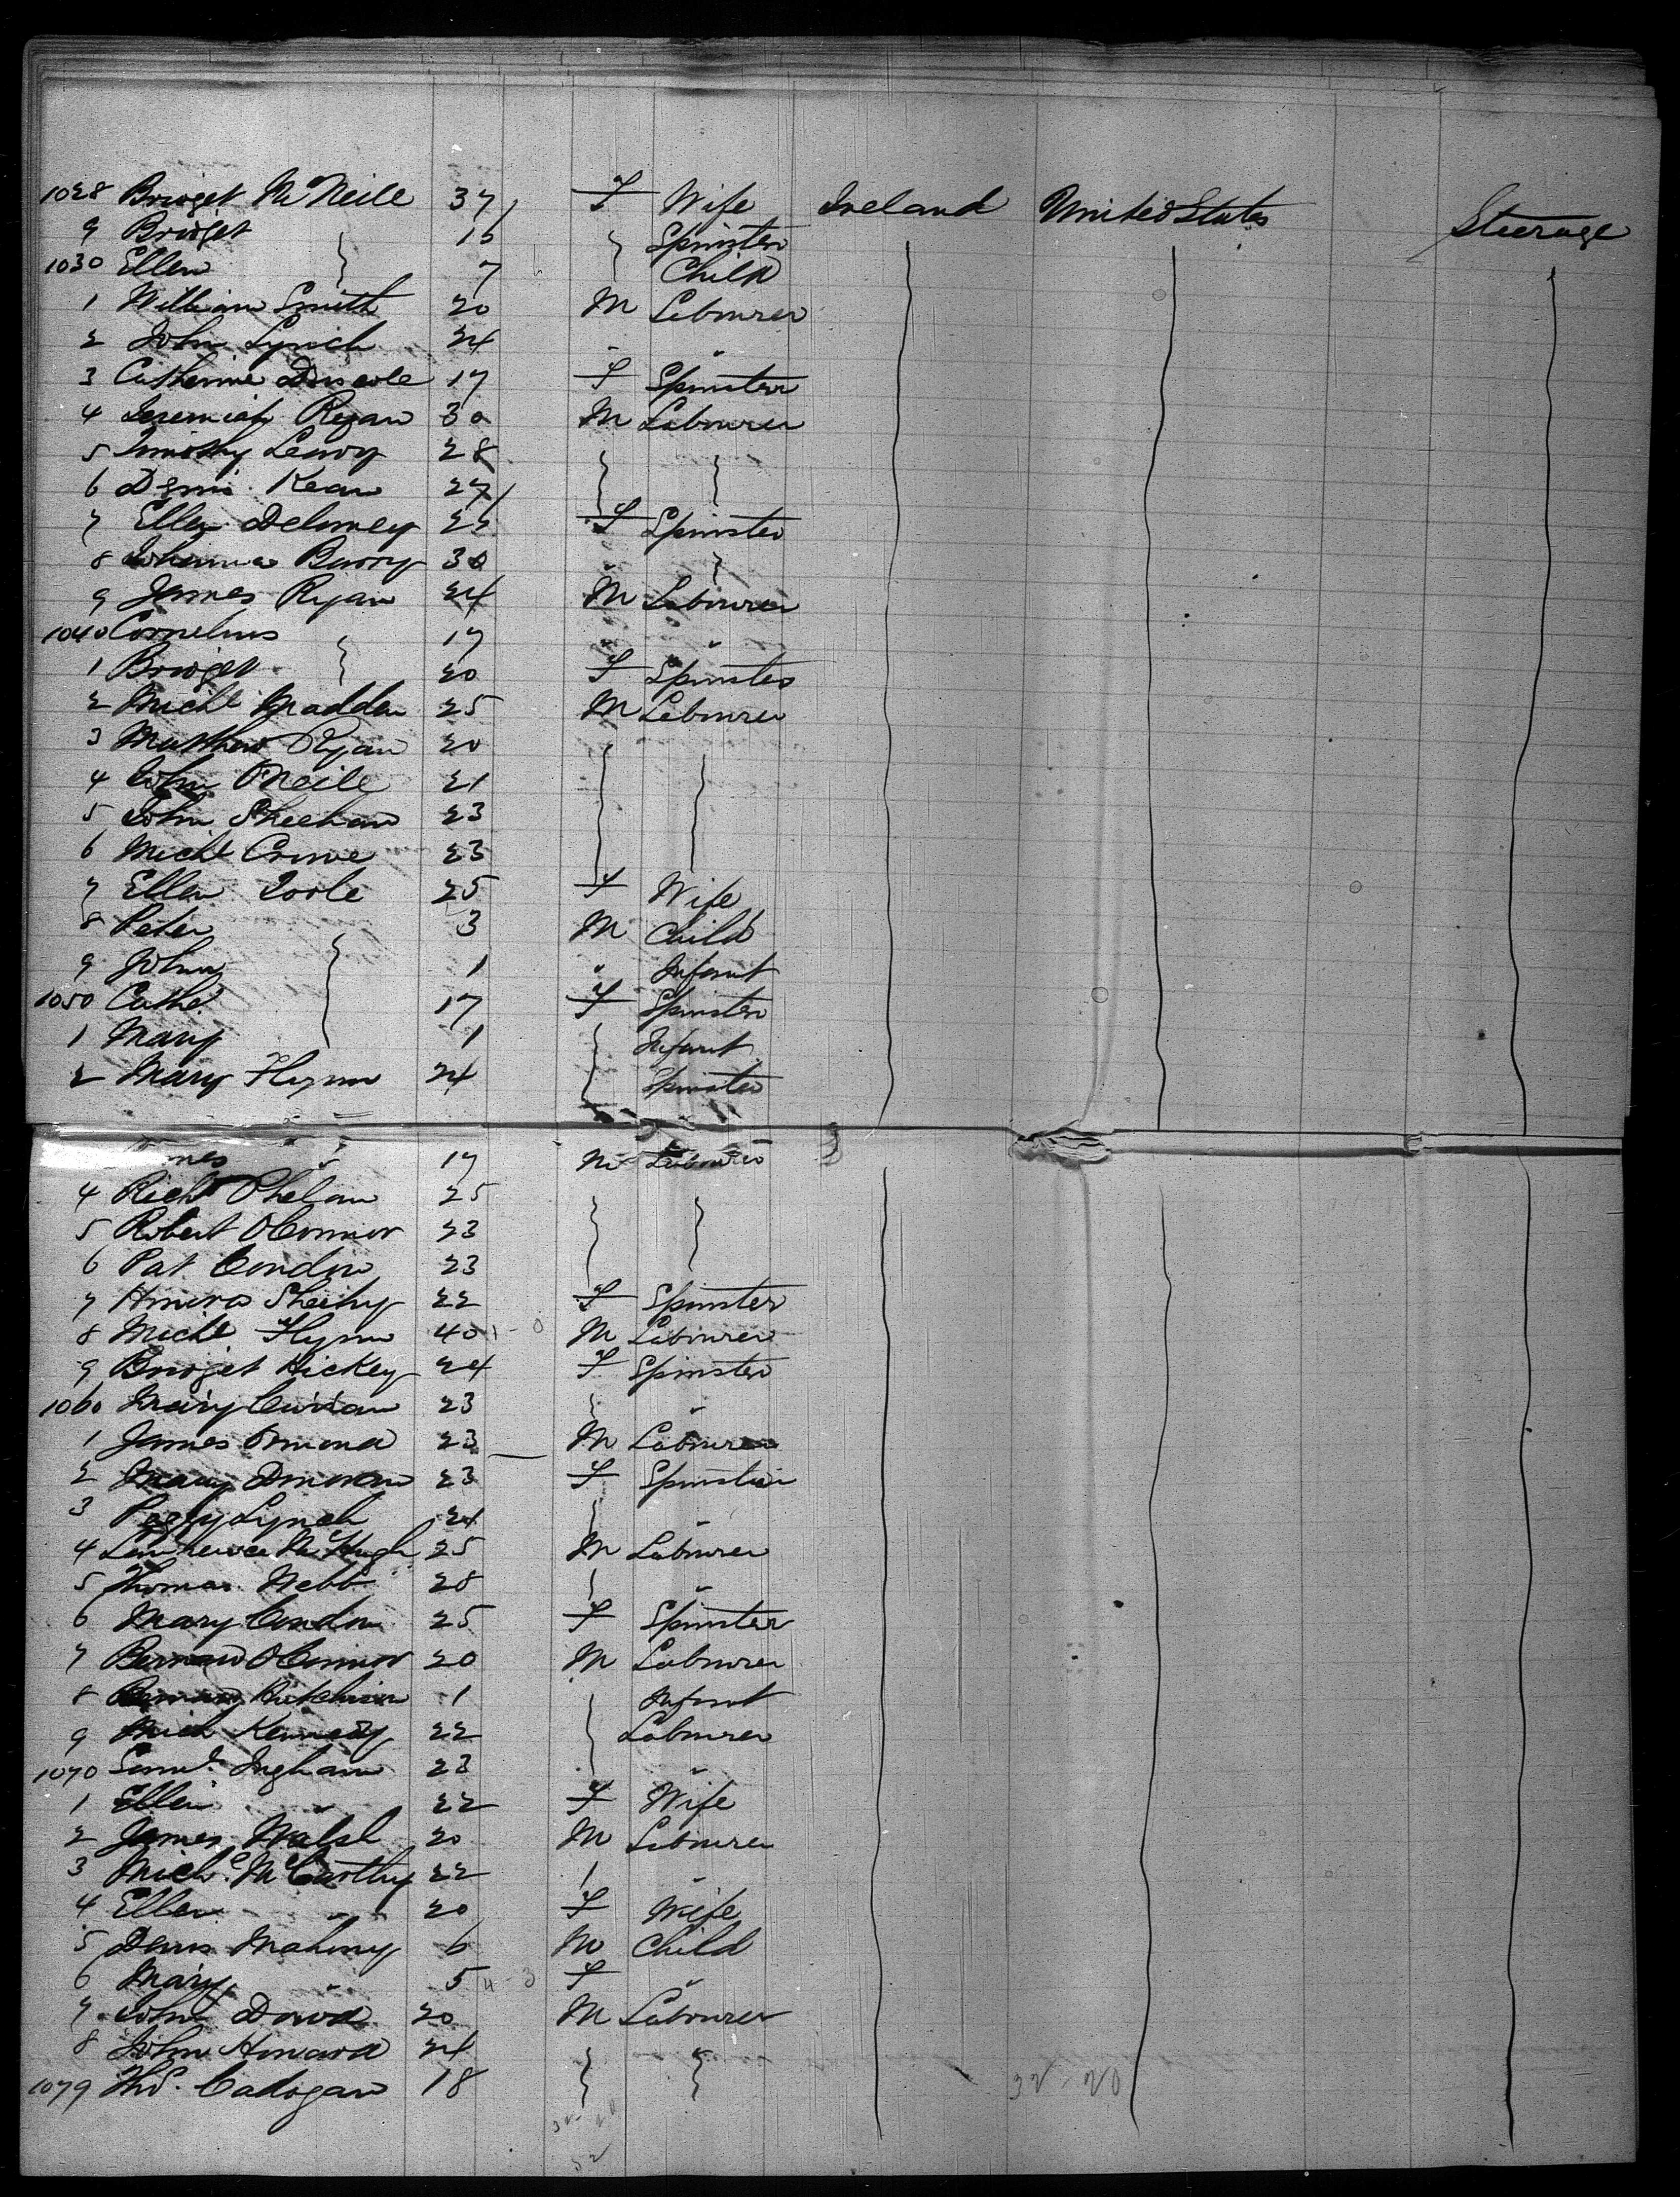 1028 Bridget McNeile 37 F Wife Ireland United States Steerage
9 Bridget 15 Spinster
1030 Ellen 7 Child
1 William Smith 20 M Labourer
2 John Lynch 24 " "
3 Catherine Driscole 17 F Spinster
4 Jeremiah Ryan 30 M Labourer
5 Timothy Leary 28
6 Denis Kean 27
7 Ellen Delaney 22 F Spinster
8 Johanna Barry 30 "
9 James Ryan 24 M Labourer
1040 Cornelius 17 " "
1 Bridget 20 F Spinster
2 Michl Madden 25 M Labourer
3 Matthew Ryan 20
4 John O'Neile 21
5 John Sheehan 23
6 Michl Crowe 23
7 Ellen Toole 25 F Wife
8 Peter 3 M Child
9 John 1 " Infant
1050 Cathe 17 F Spinster
1 Mary 1 Infant
2 Mary Flynn 24 Spinster
mes " 17 M Labourer
4 Richd Phelan 25
5 Robert O'Connor 23
6 Pat Condon 23
7 Honora Sheehy 22 F Spinster
8 Michl Flynn 40 M Labourer
9 Bridget Hickey 24 F Spinster
1060 Mary Curran 23 "
1 James Ormond 23 M Labourer
2 Mary Donovan 23 F Spinster
3 Peggy Lynch 24 "
4 Lawrence McHugh 25 M Labourer
5 Thomas Webb 28 "
6 Mary Condon 25 F Spinster
7 Bernard O'Connor 20 M Labourer
8 1 Infant
9 Mich Kennedy 22 Labourer
1070 Saml Ingham 23 "
1 Ellen " 22 F Wife
2 James Walsh 20 M Labourer
3 Michl McCarthy 22 "
4 Ellen " 20 F Wife
5 Denis Mahony 6 M Child
6 Mary " 5 4-3 F "
7 John Dowd 20 M Labourer
8 John Howard 24
1079 Thos. Cadogan 18
32-20
32-20
52